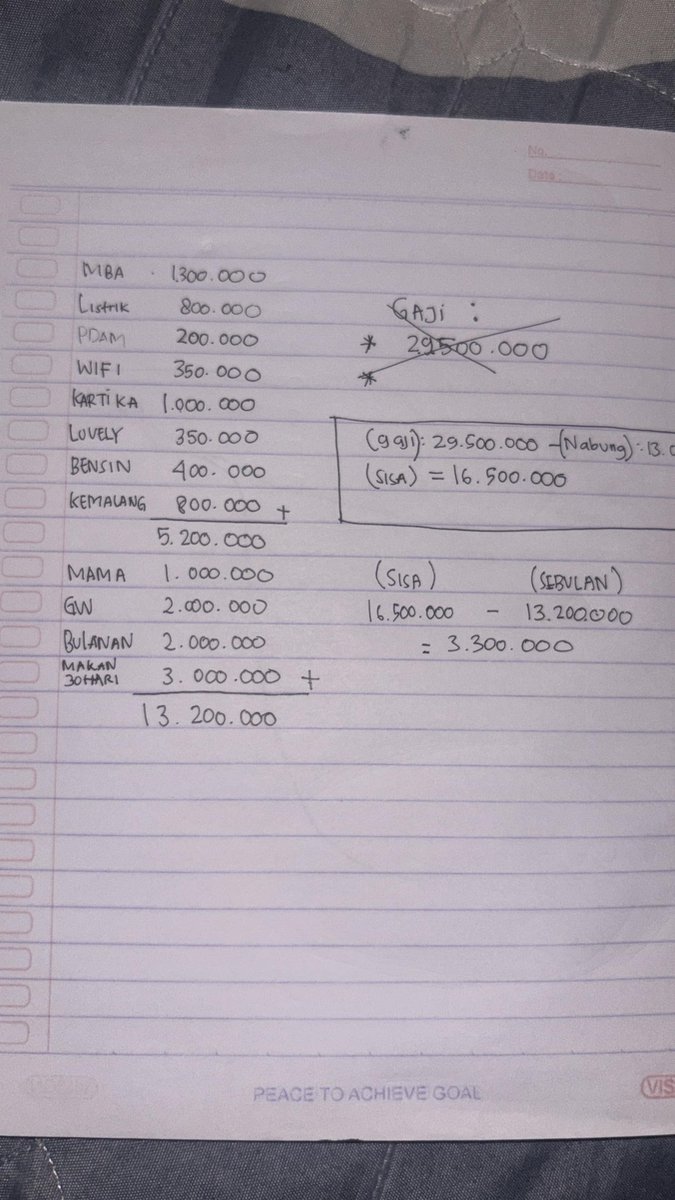 No.
Date :
MBA 1.300.000
Listrik 800.000
PDAM 200.000
WIFI 350.000
KARTIKA 1.000.000
LOVELY 350.000
BENSIN 400.000
KEMALANG 800.000 +
5.200.000
MAMA 1.000.000
GW 2.000.000
BULANAN 2.000.000
MAKAN 30HARI 3.000.000 +
13.200.000
GAJI :
* 29.500.000
*
(gaji): 29.500.000 - (Nabung): 13.0
(SISA) = 16.500.000
(SISA) (SEBULAN)
16.500.000 - 13.200.000
= 3.300.000
PEACE TO ACHIEVE GOAL
VIS